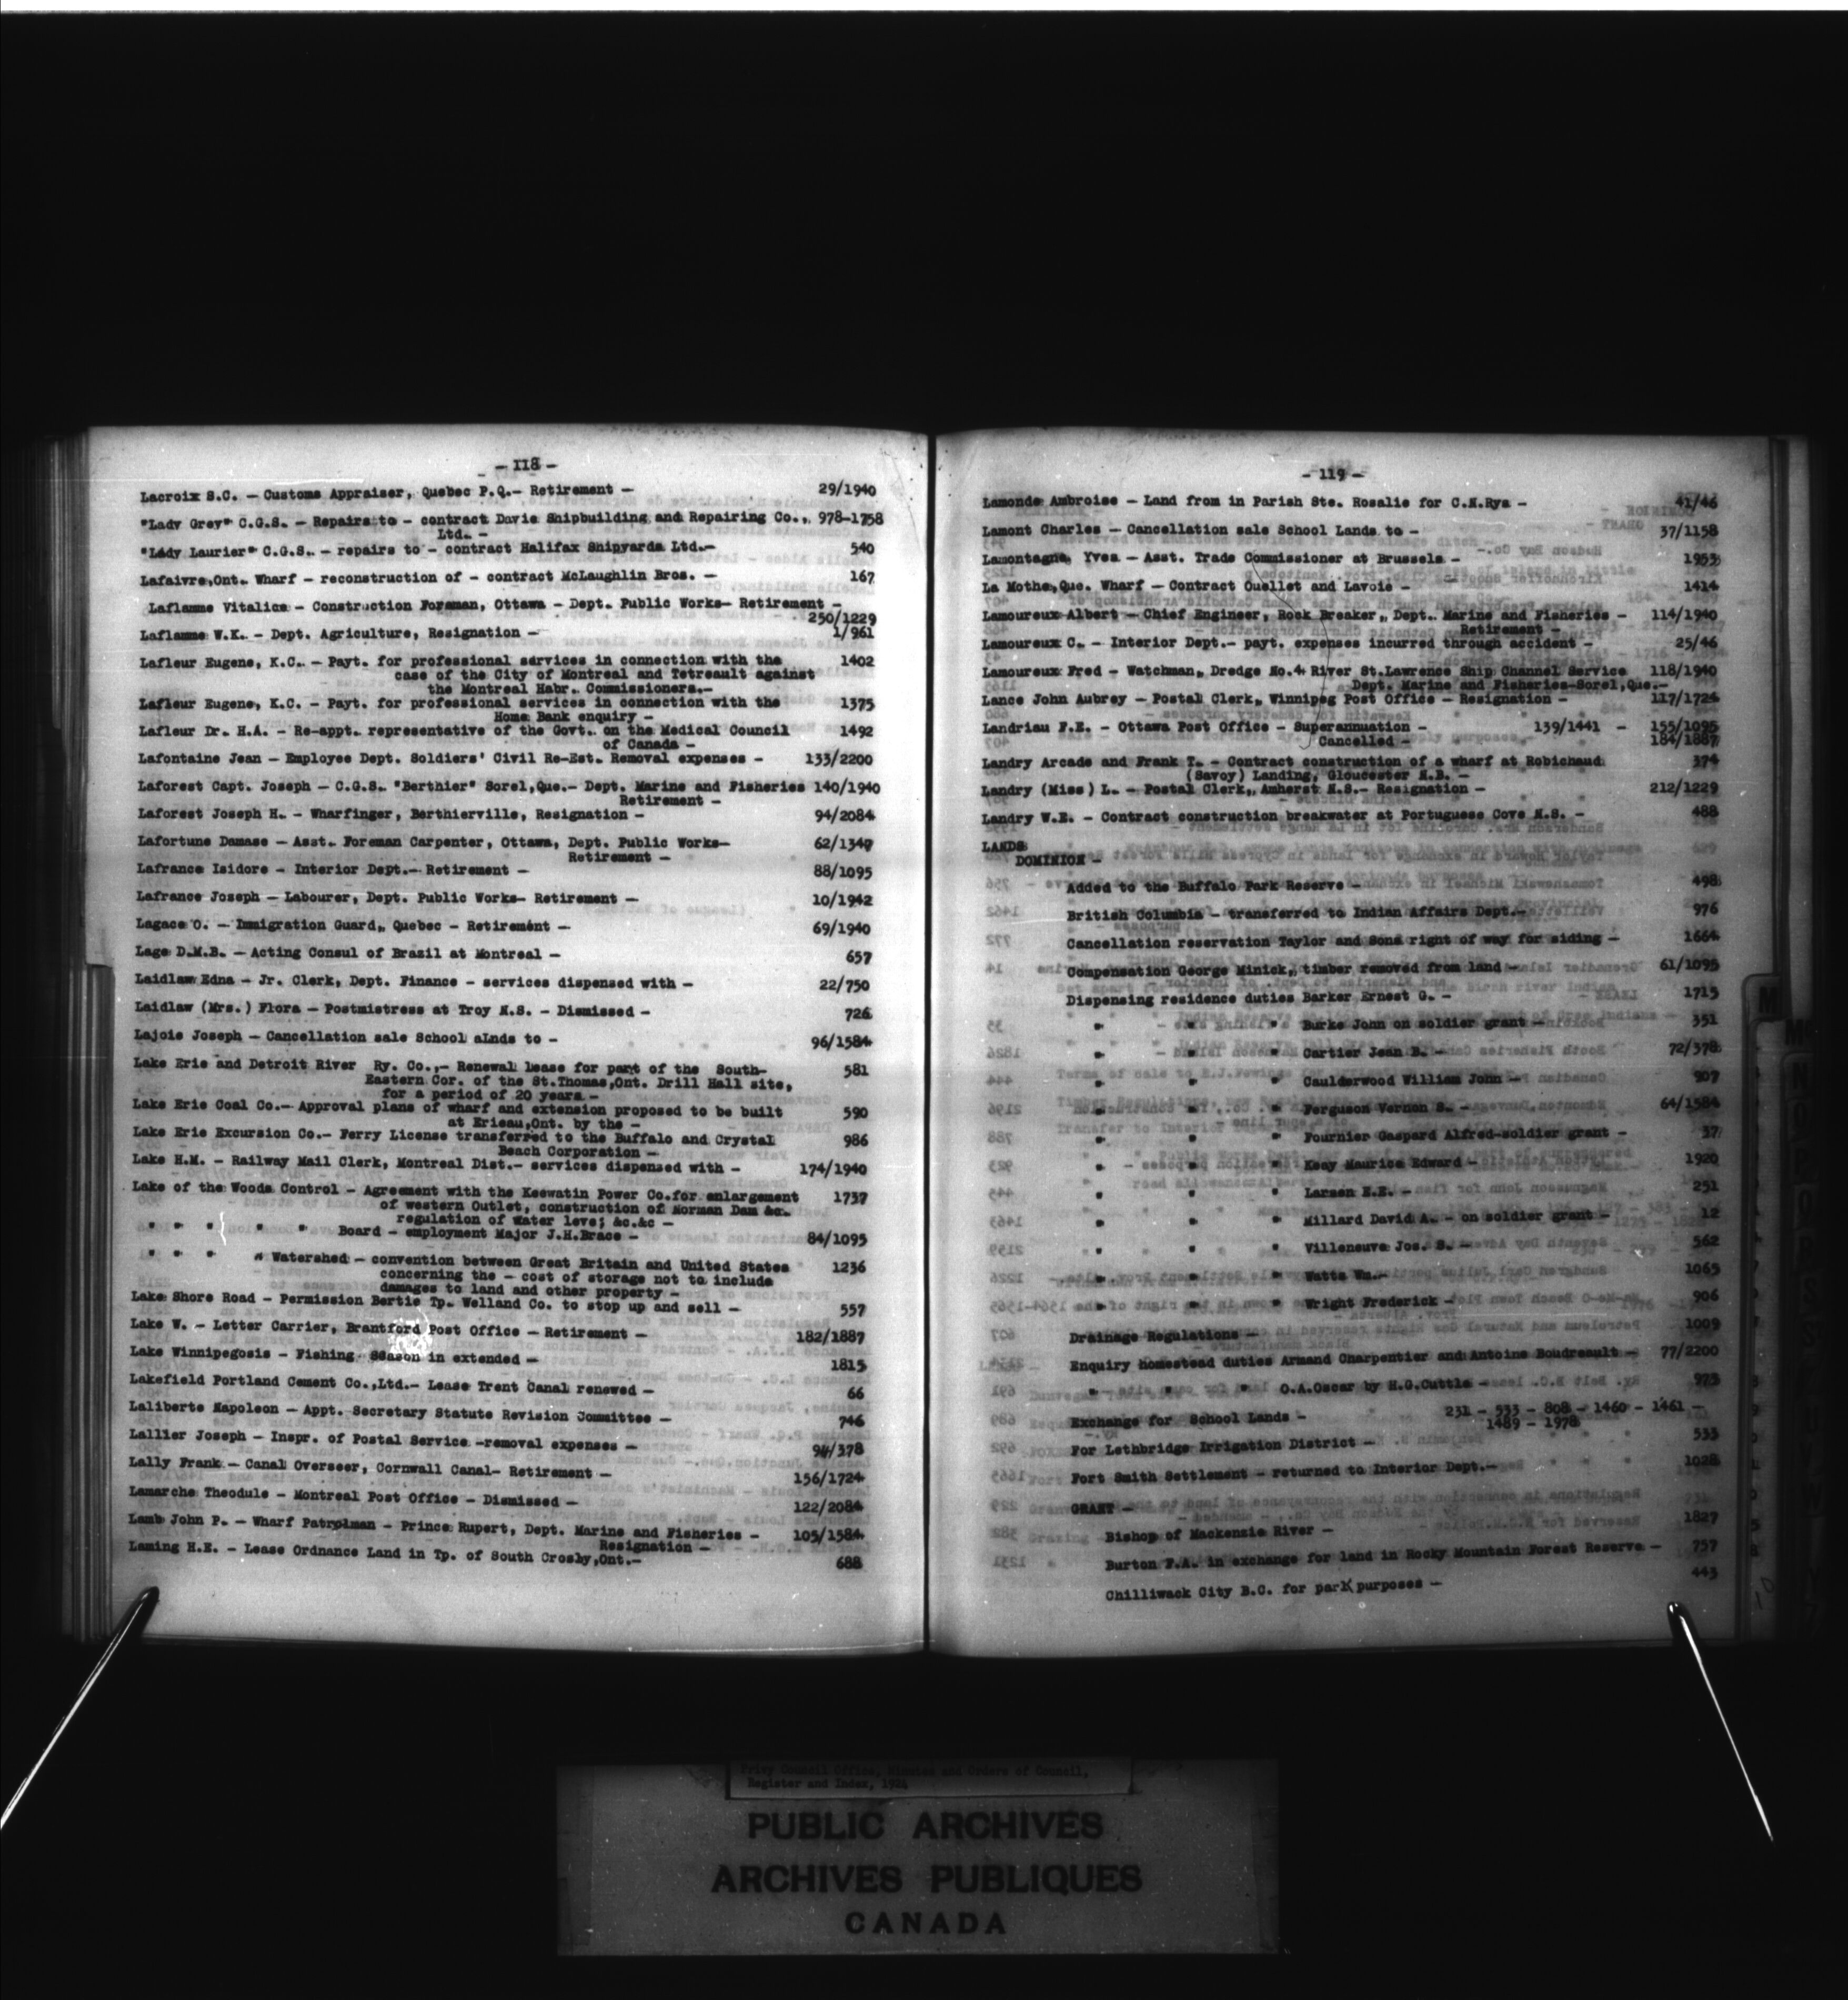 - 118 -
Lacroix S.C. - Customs Appraiser, Quebec P.Q.- Retirement - 29/1940
"Lady Grey" C.G.S. - Repairs to - contract Davie Shipbuilding and Repairing Co., 978-1758
Ltd. -
"Lady Laurier" C.G.S. - repairs to - contract Halifax Shipyards Ltd.- 540
Lafaivre,Ont. Wharf - reconstruction of - contract McLaughlin Bros. - 167
Laflamme Vitalica - Construction Foreman, Ottawa - Dept. Public Works- Retirement -
250/1229
Laflamme W.K. - Dept. Agriculture, Resignation - 1/961
Lafleur Eugene, K.C. - Payt. for professional services in connection with the 1402
case of the City of Montreal and Tetreault against
the Montreal Habr. Commissioners.-
Lafleur Eugene, K.C. - Payt. for professional services in connection with the 1375
Home Bank enquiry -
Lafleur Dr. H.A. - Re-appt. representative of the Govt. on the Medical Council 1492
of Canada -
Lafontaine Jean - Employee Dept. Soldiers' Civil Re-Est. Removal expenses - 133/2200
Laforest Capt. Joseph - C.G.S. "Berthier" Sorel,Que.- Dept. Marine and Fisheries 140/1940
Retirement -
Laforest Joseph H. - Wharfinger, Berthierville, Resignation - 94/2084
Lafortune Damase - Asst. Foreman Carpenter, Ottawa, Dept. Public Works- 62/1340
Retirement -
Lafrance Isidore - Interior Dept.- Retirement - 88/1095
Lafrance Joseph - Labourer, Dept. Public Works- Retirement - 10/1942
Lagace O. - Immigration Guard, Quebec - Retirement - 69/1940
Lage D.M.B. - Acting Consul of Brazil at Montreal - 657
Laidlaw Edna - Jr. Clerk, Dept. Finance - services dispensed with - 22/750
Laidlaw (Mrs.) Flora - Postmistress at Troy N.S. - Dismissed - 726
Lajoie Joseph - Cancellation sale School aLnds to - 96/1584
Lake Erie and Detroit River Ry. Co.,- Renewal lease for part of the South- 581
Eastern Cor. of the St.Thomas,Ont. Drill Hall site,
for a period of 20 years -
Lake Erie Coal Co.- Approval plans of wharf and extension proposed to be built 590
at Erieau,Ont. by the -
Lake Erie Excursion Co.- Ferry License transferred to the Buffalo and Crystal 986
Beach Corporation -
Lake H.M. - Railway Mail Clerk, Montreal Dist.- services dispensed with - 174/1940
Lake of the Woods Control - Agreement with the Keewatin Power Co.for enlargement 1737
of western Outlet, construction of Norman Dam &c.
regulation of water leve; &c.&c -
" " " " " Board - employment Major J.H.Brace - 84/1095
" " " " Watershed - convention between Great Britain and United States 1236
concerning the - cost of storage not to include
damages to land and other property -
Lake Shore Road - Permission Bertie Tp. Welland Co. to stop up and sell - 557
Lake W. - Letter Carrier, Brantford Post Office - Retirement - 182/1887
Lake Winnipegosis - Fishing Season in extended - 1815
Lakefield Portland Cement Co.,Ltd.- Lease Trent Canal renewed - 66
Laliberte Napoleon - Appt. Secretary Statute Revision Jommittee - 746
Lallier Joseph - Inspr. of Postal Service -removal expenses - 94/378
Lally Frank - Canal Overseer, Cornwall Canal- Retirement - 156/1724
Lamarche Theodule - Montreal Post Office - Dismissed - 122/2084
Lamb John P. - Wharf Patrolman - Prince Rupert, Dept. Marine and Fisheries - 105/1584
Resignation -
Laming H.E. - Lease Ordnance Land in Tp. of South Crosby,Ont.- 688
- 119 -
Lamonde Ambroise - Land from in Parish Ste. Rosalie for C.N.Rys - 41/46
Lamont Charles - Cancellation sale School Lands to - 37/1158
Lamontagne Yves - Asst. Trade Commissioner at Brussels - 1953
La Mothe,Que. Wharf - Contract Ouellet and Lavoie - 1414
Lamoureux Albert - Chief Engineer, Rock Breaker, Dept. Marine and Fisheries - 114/1940
Retirement -
Lamoureux C. - Interior Dept.- payt. expenses incurred through accident - 25/46
Lamoureux Fred - Watchman, Dredge No.4 River St.Lawrence Ship Channel Service 118/1940
Dept. Marine and Fisheries-Sorel,Que.-
Lance John Aubrey - Postal Clerk, Winnipeg Post Office - Resignation - 117/1724
Landriau F.E. - Ottawa Post Office - Superannuation - 139/1441 - 155/1095
Cancelled - 184/1887
Landry Arcade and Frank T. - Contract construction of a wharf at Robichaud 374
(Savoy) Landing, Gloucester N.B. -
Landry (Miss) L. - Postal Clerk, Amherst N.S.- Resignation - 212/1229
Landry W.E. - Contract construction breakwater at Portuguese Cove N.S. - 488
LANDS
DOMINION -
Added to the Buffalo Park Reserve - 498
British Columbia - transferred to Indian Affairs Dept.- 976
Cancellation reservation Taylor and Sons right of way for siding - 1664
Compensation George Minick, timber removed from land - 61/1095
Dispensing residence duties Barker Ernest G. - 1715
" " " Burke John on soldier grant - 351
" " " Cartier Jean B. - 72/378
" " " Caulderwood William John - 907
" " " Ferguson Vernon S. - 64/1584
" " " Fournier Gaspard Alfred-soldier grant - 37
" " " Keay Maurice Edward - 1920
" " " Larsen E.E. - 251
" " " Millard David A. - on soldier grant - 12
" " " Villeneuve Jos. S. - 562
" " " Watts Wm.- 1065
" " " Wright Frederick - 906
Drainage Regulations - 1009
Enquiry homestead duties Armand Charpentier and Antoine Boudreault - 77/2200
" " " O.A.Oscar by H.G.Cuttle - 973
Exchange for School Lands - 231 - 533 - 808 - 1460 - 1461 -
1489 - 1978
For Lethbridge Irrigation District - 533
Fort Smith Settlement - returned to Interior Dept.- 1028
GRANT -
Bishop of Mackenzie River - 1827
Burton F.A. in exchange for land in Rocky Mountain Forest Reserve - 757
Chilliwack City B.C. for park purposes - 443
Privy Council Office, Minutes and Orders of Council,
Register and Index, 1924
PUBLIC ARCHIVES
ARCHIVES PUBLIQUES
CANADA